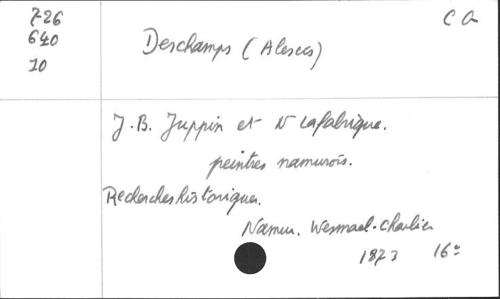 726
640
10
C a
Deschamps (Alexis)
J. B. Juppin et N Lafabrique.
peintres namurois.
Recherches historiques.
Namur. Wesmael-Charlier
1873 16°